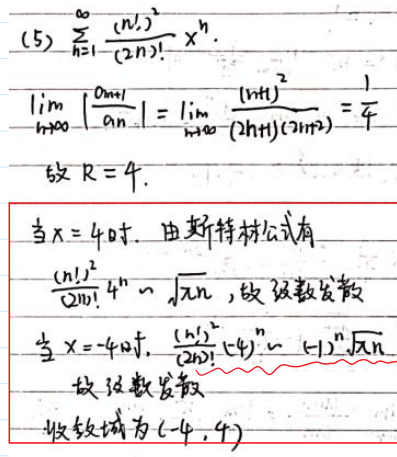 (5) ∑_{n=1}^{∞} (n!)²/(2n)! xⁿ.
lim_{n→∞} |a_{n+1}/a_n| = lim_{n→∞} (n+1)²/((2n+1)(2n+2)) = 1/4
故 R = 4.
当 x = 4 时. 由斯特林公式有
(n!)²/(2n)! 4ⁿ ~ √(πn) , 故级数发散
当 x = -4 时. (n!)²/(2n)! (-4)ⁿ ~ (-1)ⁿ√(πn)
故级数发散
收敛域为 (-4 , 4)